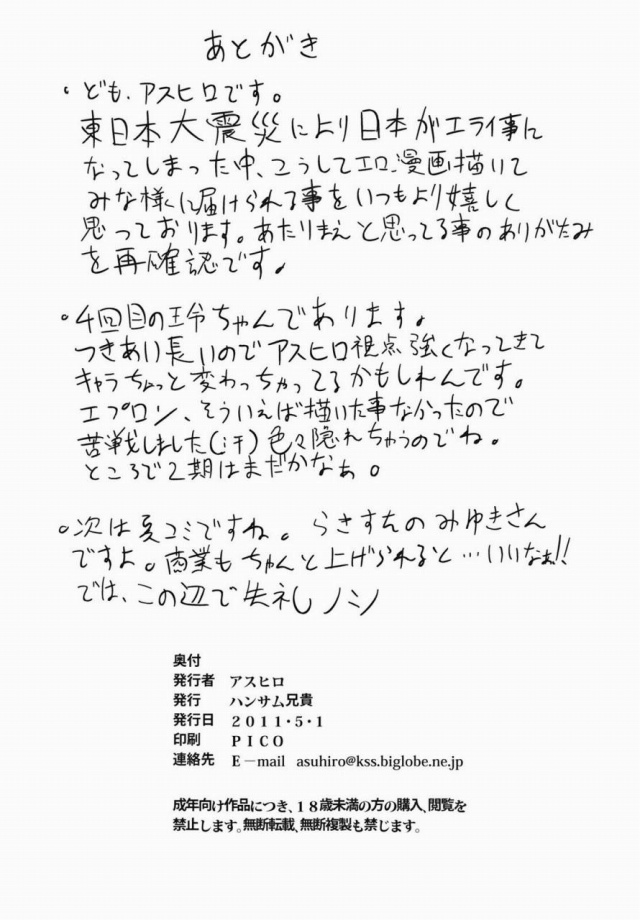 あとがき
・ども、アスヒロです。
東日本大震災により日本がエライ事に
なってしまった中、こうしてエロ漫画描いて
みな様に届けられる事をいつもより嬉しく
思っております。あたりまえと思ってる事のありがたみ
を再確認です。
・4回目の玲ちゃんであります。
つきあい長いのでアスヒロ視点強くなってきて
キャラちょっと変わっちゃってるかもしれんです。
エプロン、そういえば描いた事なかったので
苦戦しました(汗)色々隠れちゃうのでね。
ところで2期はまだかなぁ。
・次は夏コミですね。らきすたのみゆきさん
ですよ。商業もちゃんと上げられると…いいなぁ!!
では、この辺で失礼ノシ
奥付
発行者 アスヒロ
発行 ハンサム兄貴
発行日 2011・5・1
印刷 PICO
連絡先 E－mail asuhiro@kss.biglobe.ne.jp
成年向け作品につき、18歳未満の方の購入、閲覧を
禁止します。無断転載、無断複製も禁じます。